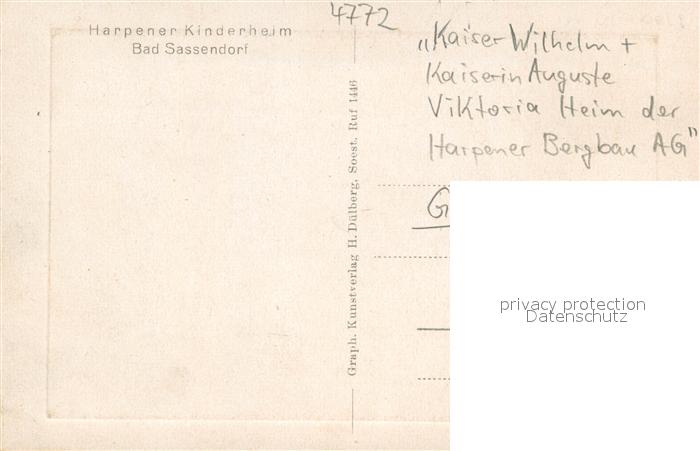 4772
Harpener Kinderheim
Bad Sassendorf
„Kaiser Wilhelm +
Kaiserin Auguste
Viktoria Heim der
Harpener Bergbau AG"
Graph. Kunstverlag H. Dülberg, Soest, Ruf 1446
G
privacy protection
Datenschutz